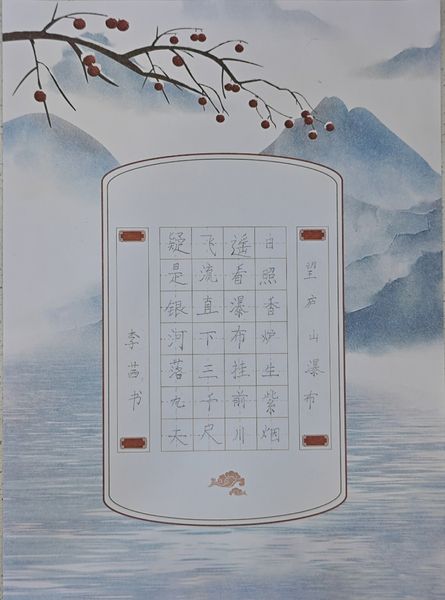 望庐山瀑布
日照香炉生紫烟
遥看瀑布挂前川
飞流直下三千尺
疑是银河落九天
李茜书